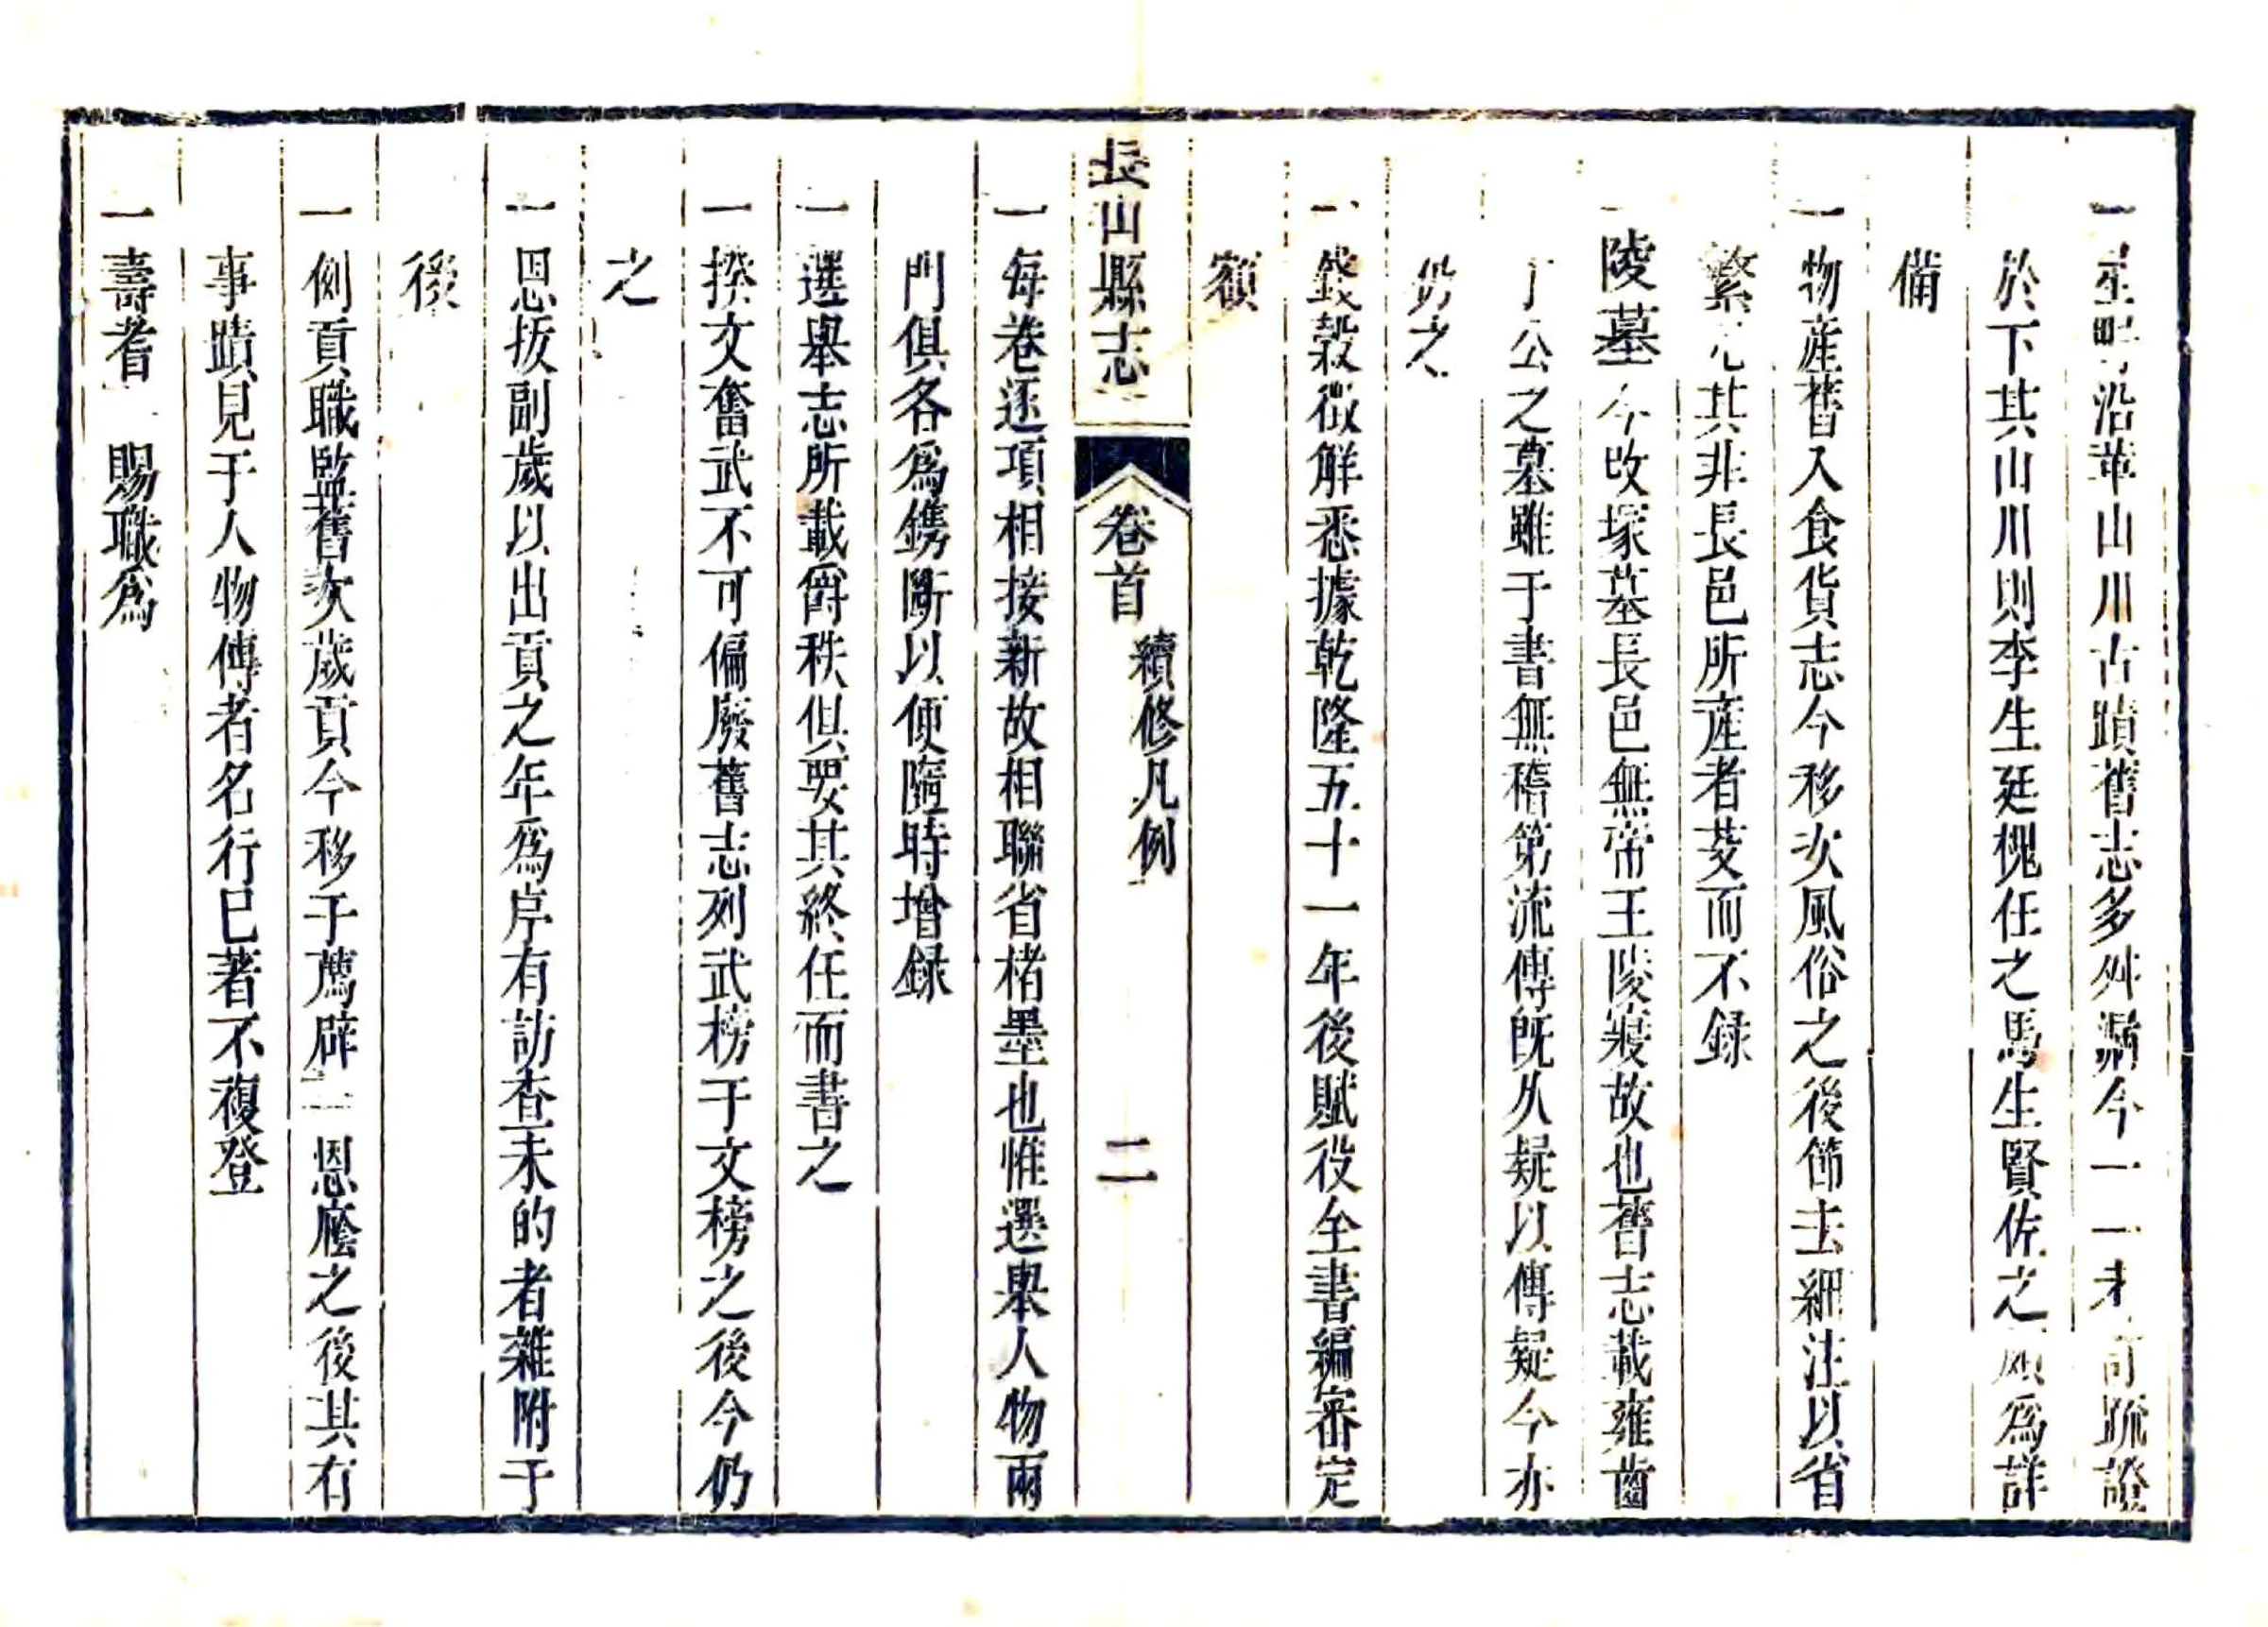 一星野沿革山川古蹟舊志多舛漏今一一考訂疏證
於下其山川則李生廷槐任之馬生賢佐之頗爲詳
備
一物産舊入食貨志今移次風俗之後節去細注以省
繁冗其非長邑所産者芟而不録
一陵墓今改塚墓長邑無帝王陵寢故也舊志載雍齒
丁公之墓雖于書無稽第流傳旣久疑以傳疑今亦
仍之
一錢穀徵解悉據乾隆五十一年後賦役全書編審定
額
長山縣志 卷首 續修凡例 二
一每卷逐項相接新故相聯省楮墨也惟選舉人物兩
門俱各爲鐫斷以便隨時增録
一選舉志所載爵秩俱要其終任而書之
一揆文奮武不可偏廢舊志列武榜于文榜之後今仍
之
一恩拔副歲以出貢之年爲序有訪查未的者雜附于
後
一例貢職監舊次歲貢今移于薦辟 恩廕之後其有
事蹟見于人物傳者名行已著不複登
一壽耆 賜職爲